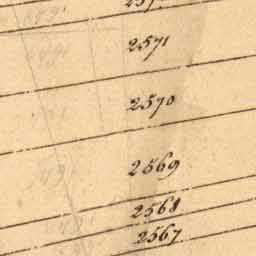 2571
2570
2569
2568
2567